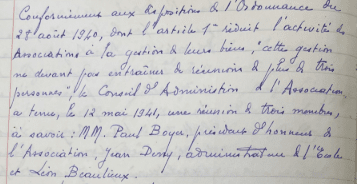 Conformément aux dispositions de l'Ordonnance du
28 août 1940, dont l'article 1er réduit l'activité des
Associations à la gestion de leurs biens, "cette gestion
ne devant pas entraîner de réunions de plus de trois
personnes", le Conseil d'Administion de l'Association
a tenu, le 12 mai 1941, une réunion de trois membres,
à savoir : MM. Paul Boyer, président d'honneur de
l'Association, Jean Deny, administrateur de l'Ecole
et Léon Beaulieux.